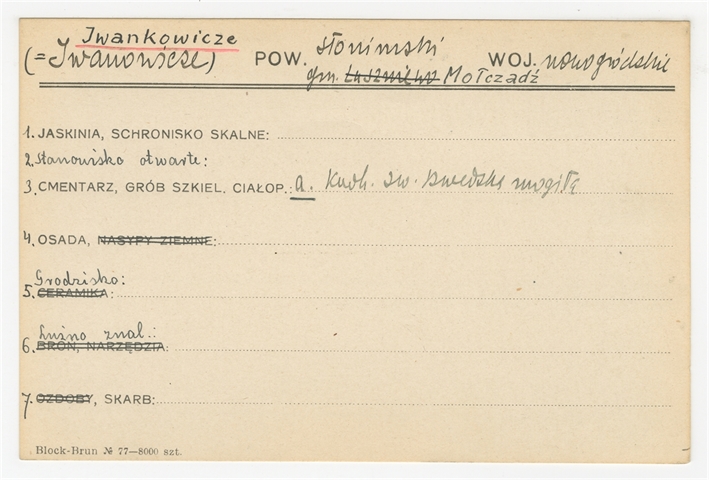 Iwankowicze
(=Iwanowicze) POW. słonimski WOJ. nowogródzkie
gm. Mołczadź
1. JASKINIA, SCHRONISKO SKALNE:
2. Stanowisko otwarte:
3. CMENTARZ, GRÓB SZKIEL, CIAŁOP.: a. Kurh. zw. szwedzką mogiłą
4. OSADA, NASYPY ZIEMNE:
Grodzisko:
5. CERAMIKA:
Luźno znal.:
6. BROŃ, NARZĘDZIA:
7. OZDOBY, SKARB:
Block-Brun № 77—8000 szt.